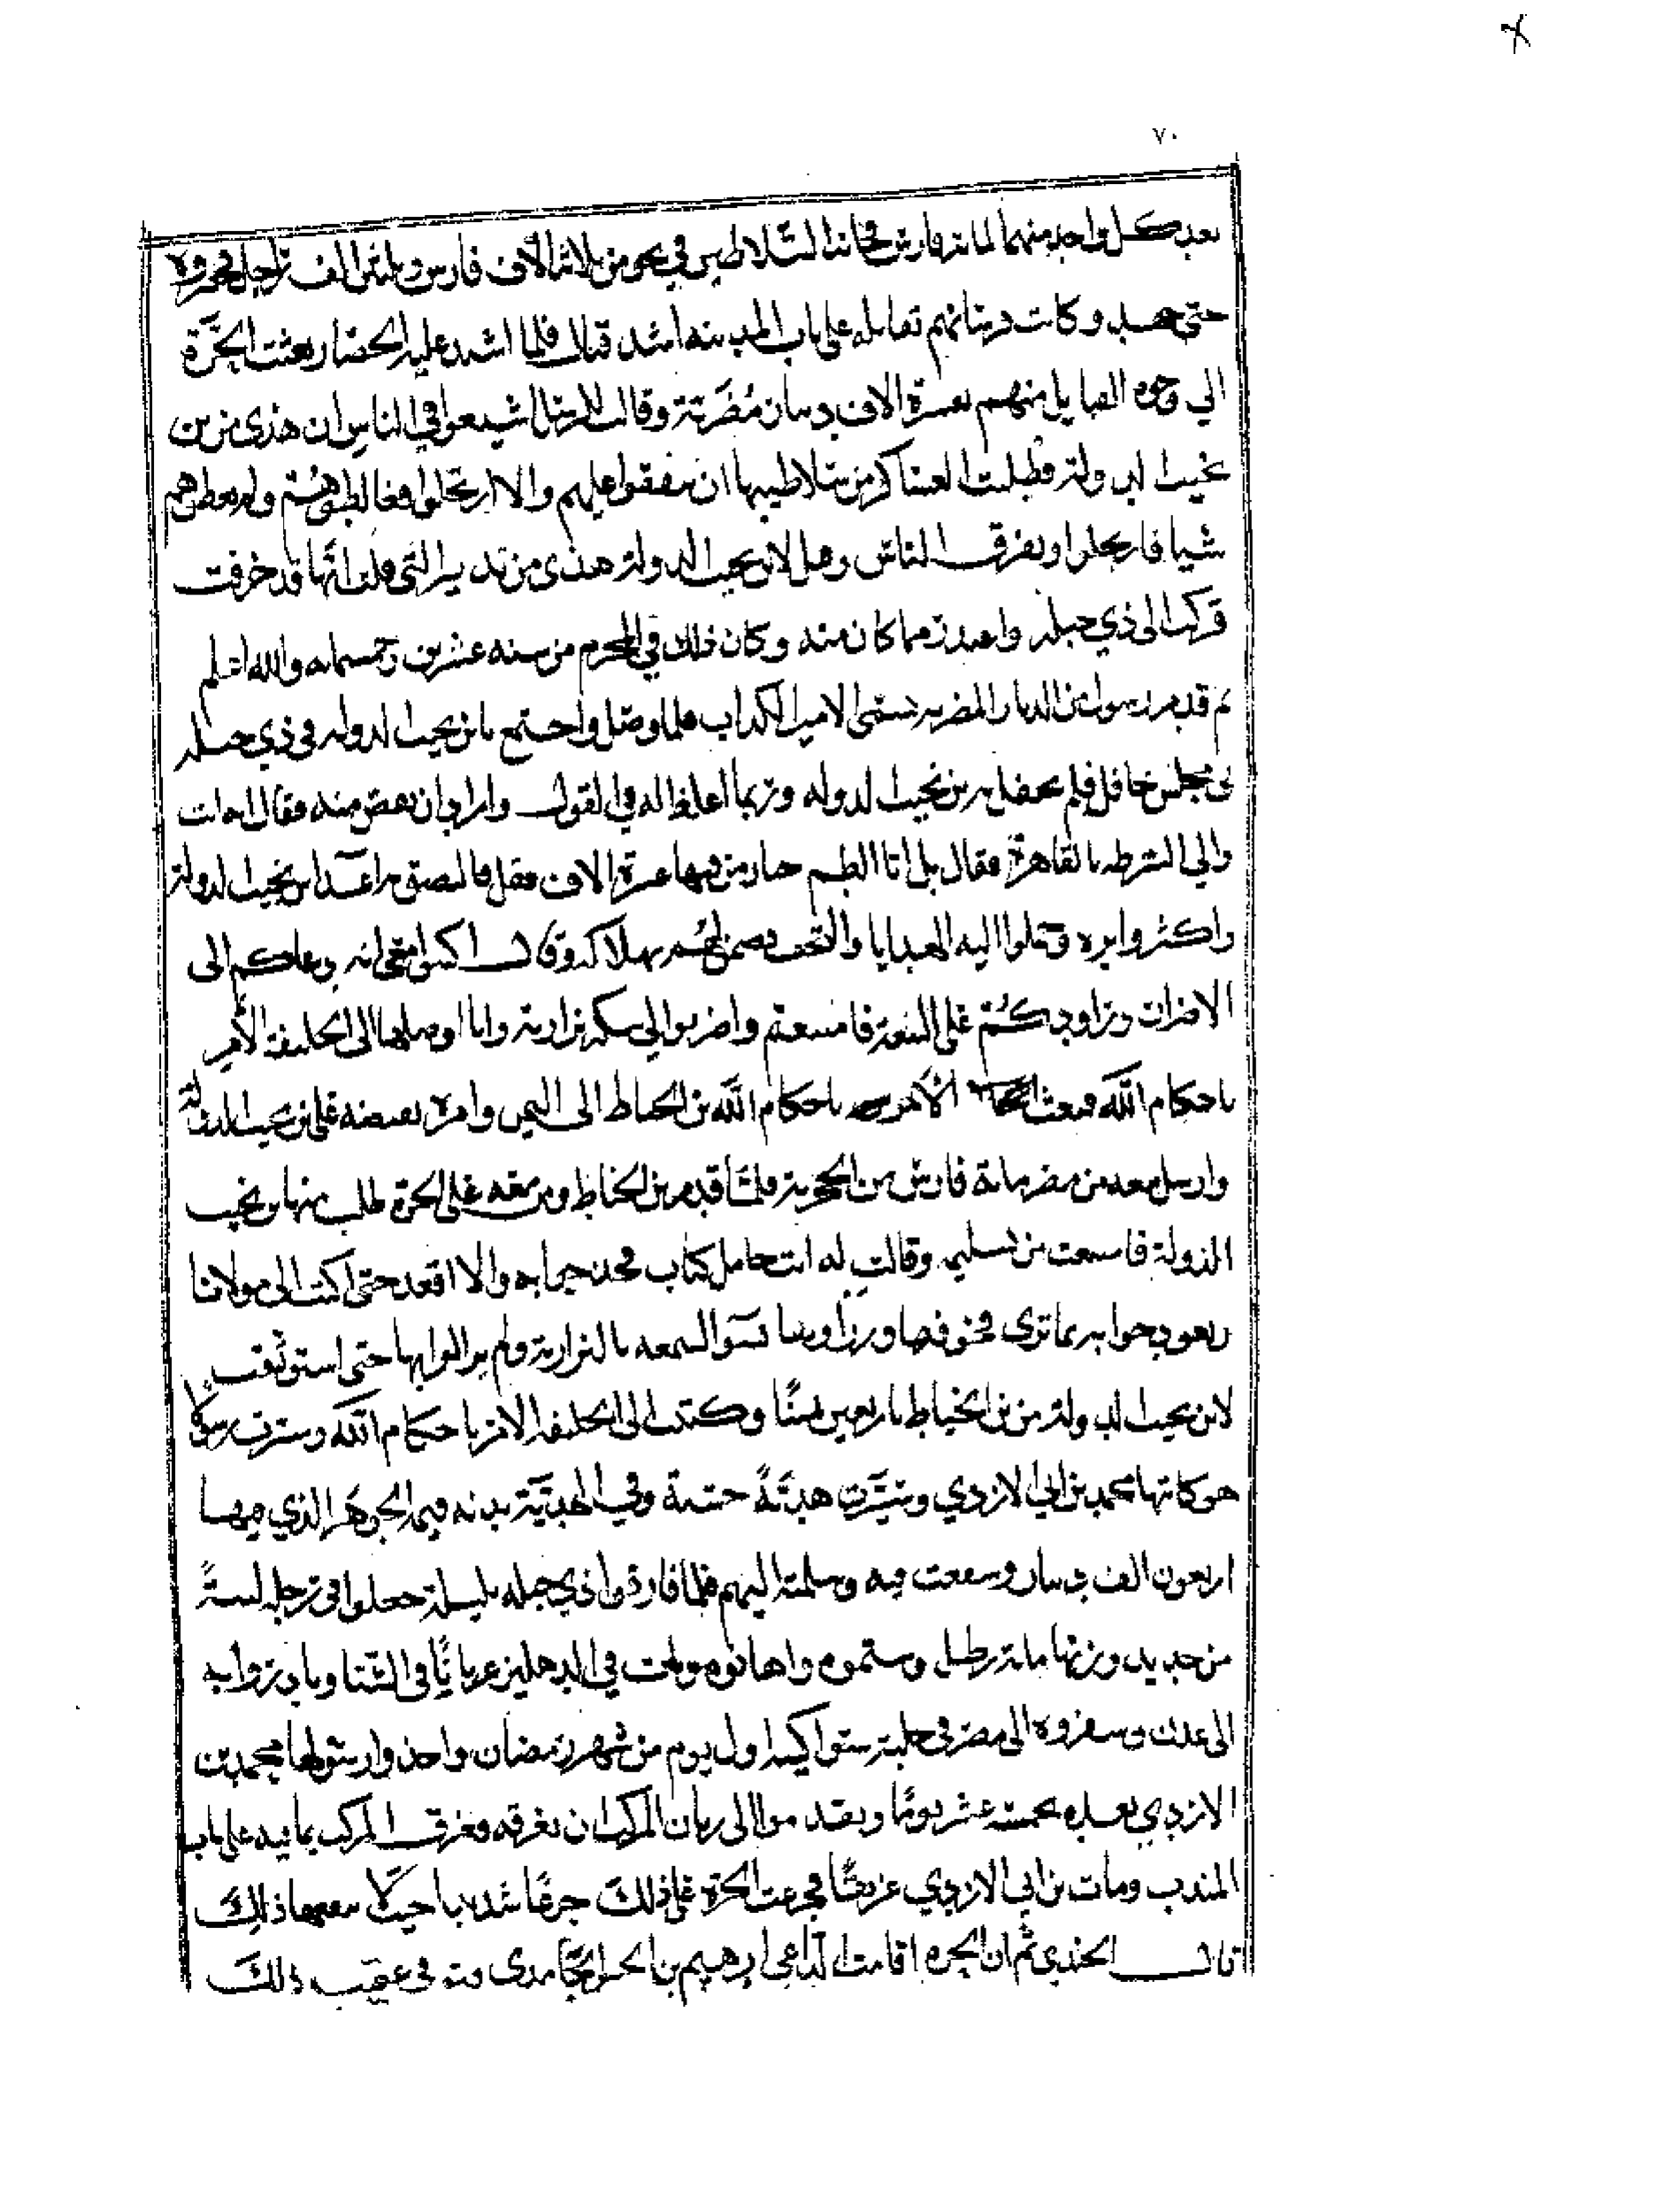 ٧٠
بعد كل واحد منهما لمائة فارس فجاءت السلاطين في نحو من ثلاثة الاف فارس وثلثين الف راجل فحصروه
حتى جهد وكانت فرسانهم تقاتله على باب المدينة اشد قتال فلما اشتد عليه الحصار بعثت الحرة
الي وجوه القبايل منهم بعشرة الاف دينار مصرية وقالت للرسل اشيعوا في الناس ان هذى من بن
نجيب الدولة وطلبت العساكر من سلاطينها ان ينفقوا عليهم والا ارتحلوا فغالطوهم ولم يعطوهم
شيا فارتحلوا وتفرق الناس وقيل لابن نجيب الدولة هذى من تدبير التي قلت انها قد خرفت
فركب الى ذي جبلة واعتذر مما كان منه وكان ذلك في المحرم من سنه عشرين وخمسمايه والله اعلم
ثم قدم رسول من الديار المصريه يسمى الامير الكذاب فلما وصل واجتمع بابن نجيب الدوله في ذي جبله
في مجلس حافل فلم يحفل به بن نجيب الدوله وربما اغلظ له في القول وارادوا ان يغض منه فقال انت
والي الشرطه بالقاهرة فقال بل انا الطم خيار من فيها عشرة الاف نعل فالتصق به اعداء بن نجيب الدولة
واكثروا بره وحملوا اليه الهدايا والتحف فضمن لهم هلاكه وقال اكتبوا معي انه دعاكم الى
الا نزار وراودكم على البيعة فامتنعتم واضربوا لي سكة نزارية وانا اوصلها الى الخليفة الآمر
باحكام الله فبعث الآمر باحكام الله بن الخياط الى اليمن وامره بقبضه على بن نجيب الدولة
وارسل معه من مصر مائة فارس من الحجرية فلما قدم بن الخياط ومن معه على الحرة طلب منها بن نجيب
الدولة فامتنعت من تسليمه وقالت له انت حامل كتاب فخذ جوابه والا اقعد حتى اكتب الى مولانا
ويعود جوابه بما ترى فخوفها وزراوها سو السمعه بالنزارية ولم يزالوا بها حتى استوثقت
لابن نجيب الدولة من بن الخياط باربعين يمينًا وكتبت الى الخليفة الآمر باحكام الله وسيرت رسولا
هو كاتبها محمد بن ابي الازدي وسيرت هديةً حسنة وفي الهدية بدنه قيمة الجوهر الذي فيها
اربعون الف دينار وشفعت فيه وسلمته اليهم فلما فارقوا ذي جبله بليلة جعلوا في رجله لبنةً
من حديد وزنها مائة رطل وشتموه واهانوه وبات في الدهليز عريانًا في الشتا وبادروا به
الى عدن وسفروه الى مصر في جلبة سواكنية اول يوم من شهر رمضان واخذوا رسولها محمد بن
الازدي بعده بخمسة عشر يومًا وتقدموا الى ربان المركب ان يغرقه فغرق المركب بما فيه على باب
المندب ومات بن ابي الازدي غريقًا فجزعت الحرة على ذلك جزعًا شديدًا حيث لا ينفعها ذلك
قال الجندي ثم ان الحره اقامت الداعي ابرهيم بن الحسين الحامدى وفي عقيب ذلك